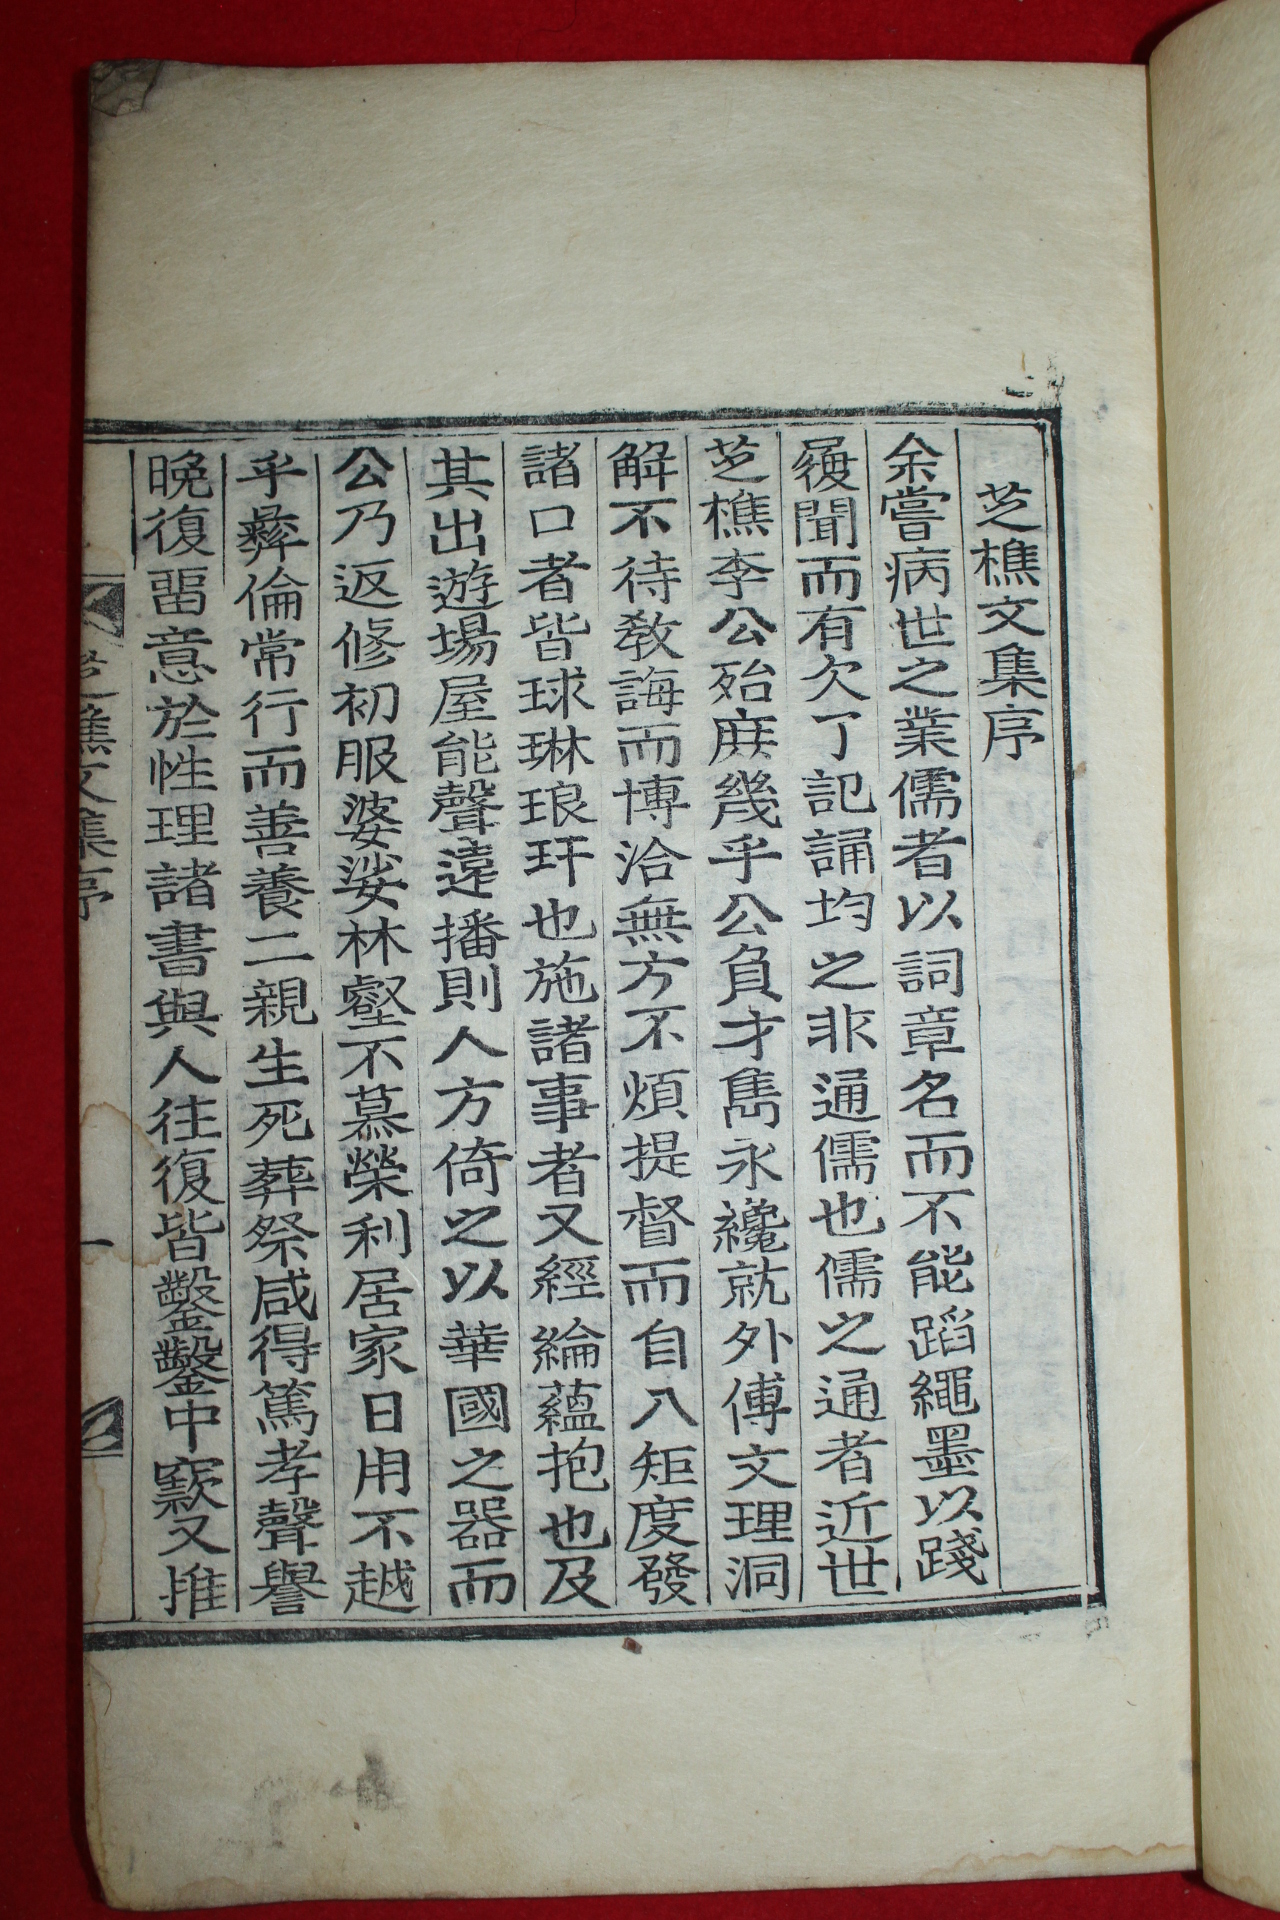 芝樵文集序
余嘗病世之業儒者以詞章名而不能蹈繩墨以踐
履聞而有欠了記誦均之非通儒也儒之通者近世
芝樵李公殆庶幾乎公負才雋永纔就外傅文理洞
解不待敎誨而博洽無方不煩提督而自入矩度發
諸口者皆球琳琅玕也施諸事者又經綸蘊抱也及
其出遊場屋能聲遠播則人方倚之以華國之器而
公乃返修初服婆娑林壑不慕榮利居家日用不越
乎彜倫常行而善養二親生死葬祭咸得篤孝聲譽
晩復畱意於性理諸書與人往復皆鑿鑿中窾又推
芝樵文集序 一